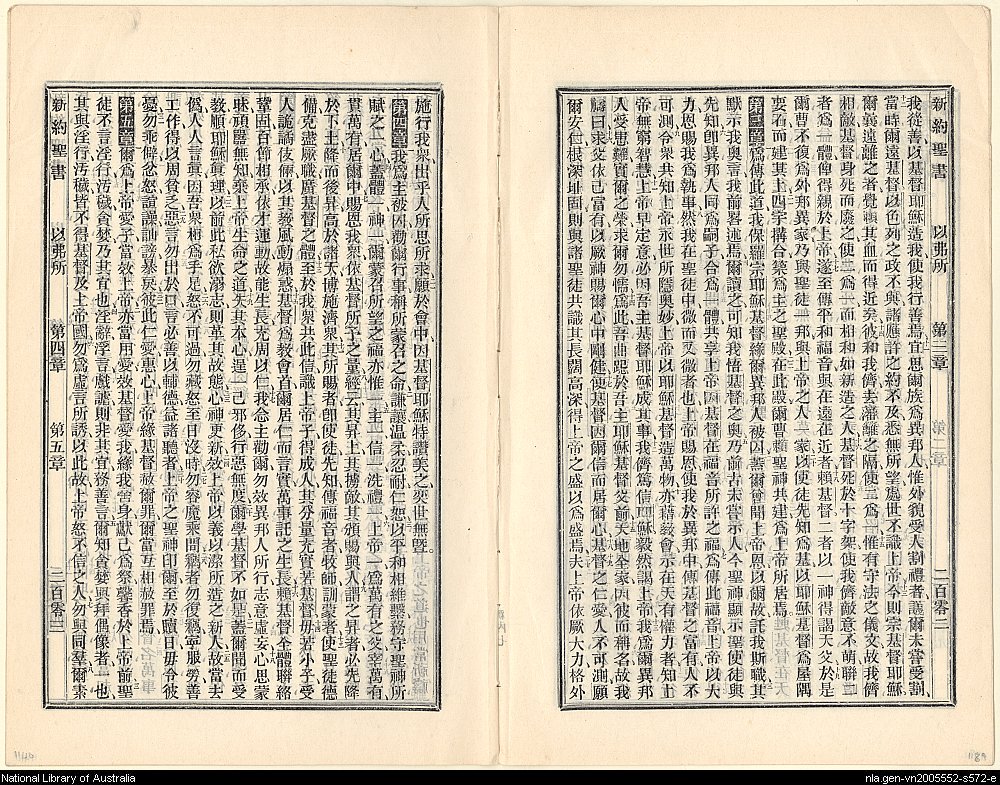 新約聖書 以弗所 第三章 第二章 二百零二
我從善以基督耶穌造我使我行善焉宜思爾族爲異邦人惟外貌受人割禮者議爾未嘗受割
當時爾遠基督以色列之政不與諸應許之約不及悉無所望處世不識上帝今則宗基督耶穌
爾曩遠離之者覺賴其血而得近矣彼和我儕去藩籬之隔使二爲一惟有守法之儀文故我儕
相敵基督身死而廢之使二爲一而相和如新造之人基督死於十字架使我儕敵意不萌聯二
者爲一體俾得親於上帝遂至傳平和福音與在遠在近者賴基督二者以一神得謁天父於是
爾曹不復爲外邦異家乃與聖徒一邦與上帝之人一家以使徒先知爲基以耶穌基督爲屋隅
要石而建其上四字搆合築爲主之聖殿在此殿爾曹賴聖神共建爲上帝所居焉
第三章爲傳此道我保羅宗耶穌基督緣爾異邦人被囚蓋爾曾聞上帝恩以爾故託我斯職其
默示我奧言我前畧述焉爾讀之可知我悟基督之奧乃前古未嘗示人今聖神顯示聖使徒與
先知卽異邦人同爲嗣子合爲一體共享上帝因基督在福音所許之福爲傳此福音上帝以大
力恩賜我爲執事然我在聖徒中微而又微者也上帝賜恩使我於異邦中傳基督之富有人不
可測令衆共知上帝永世所隱奧妙上帝以耶穌基督造萬物亦藉教會示在天有權力者知上
帝無窮智慧上帝早定意必因吾主基督耶穌成其事我儕篤信耶穌毅然謁上帝我爲爾異邦
人受患難實爾之榮求爾勿懦爲此吾曲跽於吾主耶穌基督父前天地全家因彼而稱名故我
籲曰求父依己富有以厥神賜爾心中剛健使基督因爾信而居爾心基督之仁愛人不可測願
爾安仁根深址固則與諸聖徒共識其長闊高深得上帝之盛以爲盛焉夫上帝依厥大力格外
施行我衆出乎人所思所求願於會中因基督耶穌特讚美之奕世無曁
第四章我爲主被囚勸爾行事稱所蒙召之命謙讓温柔忍耐仁恕以平和相維繫務守聖神所
賦之一心蓋體一神一爾蒙召所望之福亦惟一主一信一洗禮一上帝一爲萬有之父宰萬有
貫萬有居爾中賜恩我衆依基督所予之量經云其昇上其擄敵其頒賜與人謂之昇者必先降
於下土降而後昇高於諸天博施濟衆其所賜者卽使徒先知傳福音者牧師訓蒙者使聖徒德
備克盡厥職廣基督之體至於我衆共此信識上帝子得成人其分量充實若基督毋若小子受
人詭譎伎倆以其教風動煽惑基督爲教會首爾居仁而言實萬事託之生長賴基督全體聯絡
鞏固百節相承依才運動故能生長充周以仁我念主勸爾勿效異邦人所行志意虛妄心思蒙
昧頑嚚無知乘上帝生命之道失其本心逞一己邪侈行惡無度爾學基督不如是蓋爾聞而受
教順耶穌眞理以前此私欲溺志則革其故態心神更新效上帝以義以潔所造之新人故當去
僞人人言眞因吾衆相爲手足怒不可過勿藏怒至日沒時勿容魔乘間竊者勿復竊寧服勞善
工作得以周貧乏惡言勿出於口言必善以輔德益諸聽者上帝之聖神印爾至於贖日毋令彼
憂勿乖僻忿怒諠譟訕謗暴戾彼此仁愛惠心上帝緣基督赦爾罪爾當互相赦罪焉
第五章爾爲上帝愛子當效上帝亦當用愛效基督愛我緣我舍身獻己爲祭馨香於上帝前聖
徒不言淫行汚穢貪婪乃其宜也淫辭浮言戲謔則非其宜務善言爾知貪婪與拜偶像者一也
其與淫行汚穢皆不得基督及上帝國勿爲虛言所誘以此故上帝怒不信之人勿與同羣爾素
新約聖書 以弗所 第四章 第五章 二百零三
National Library of Australia
nla.gen-vn2005552-s572-e